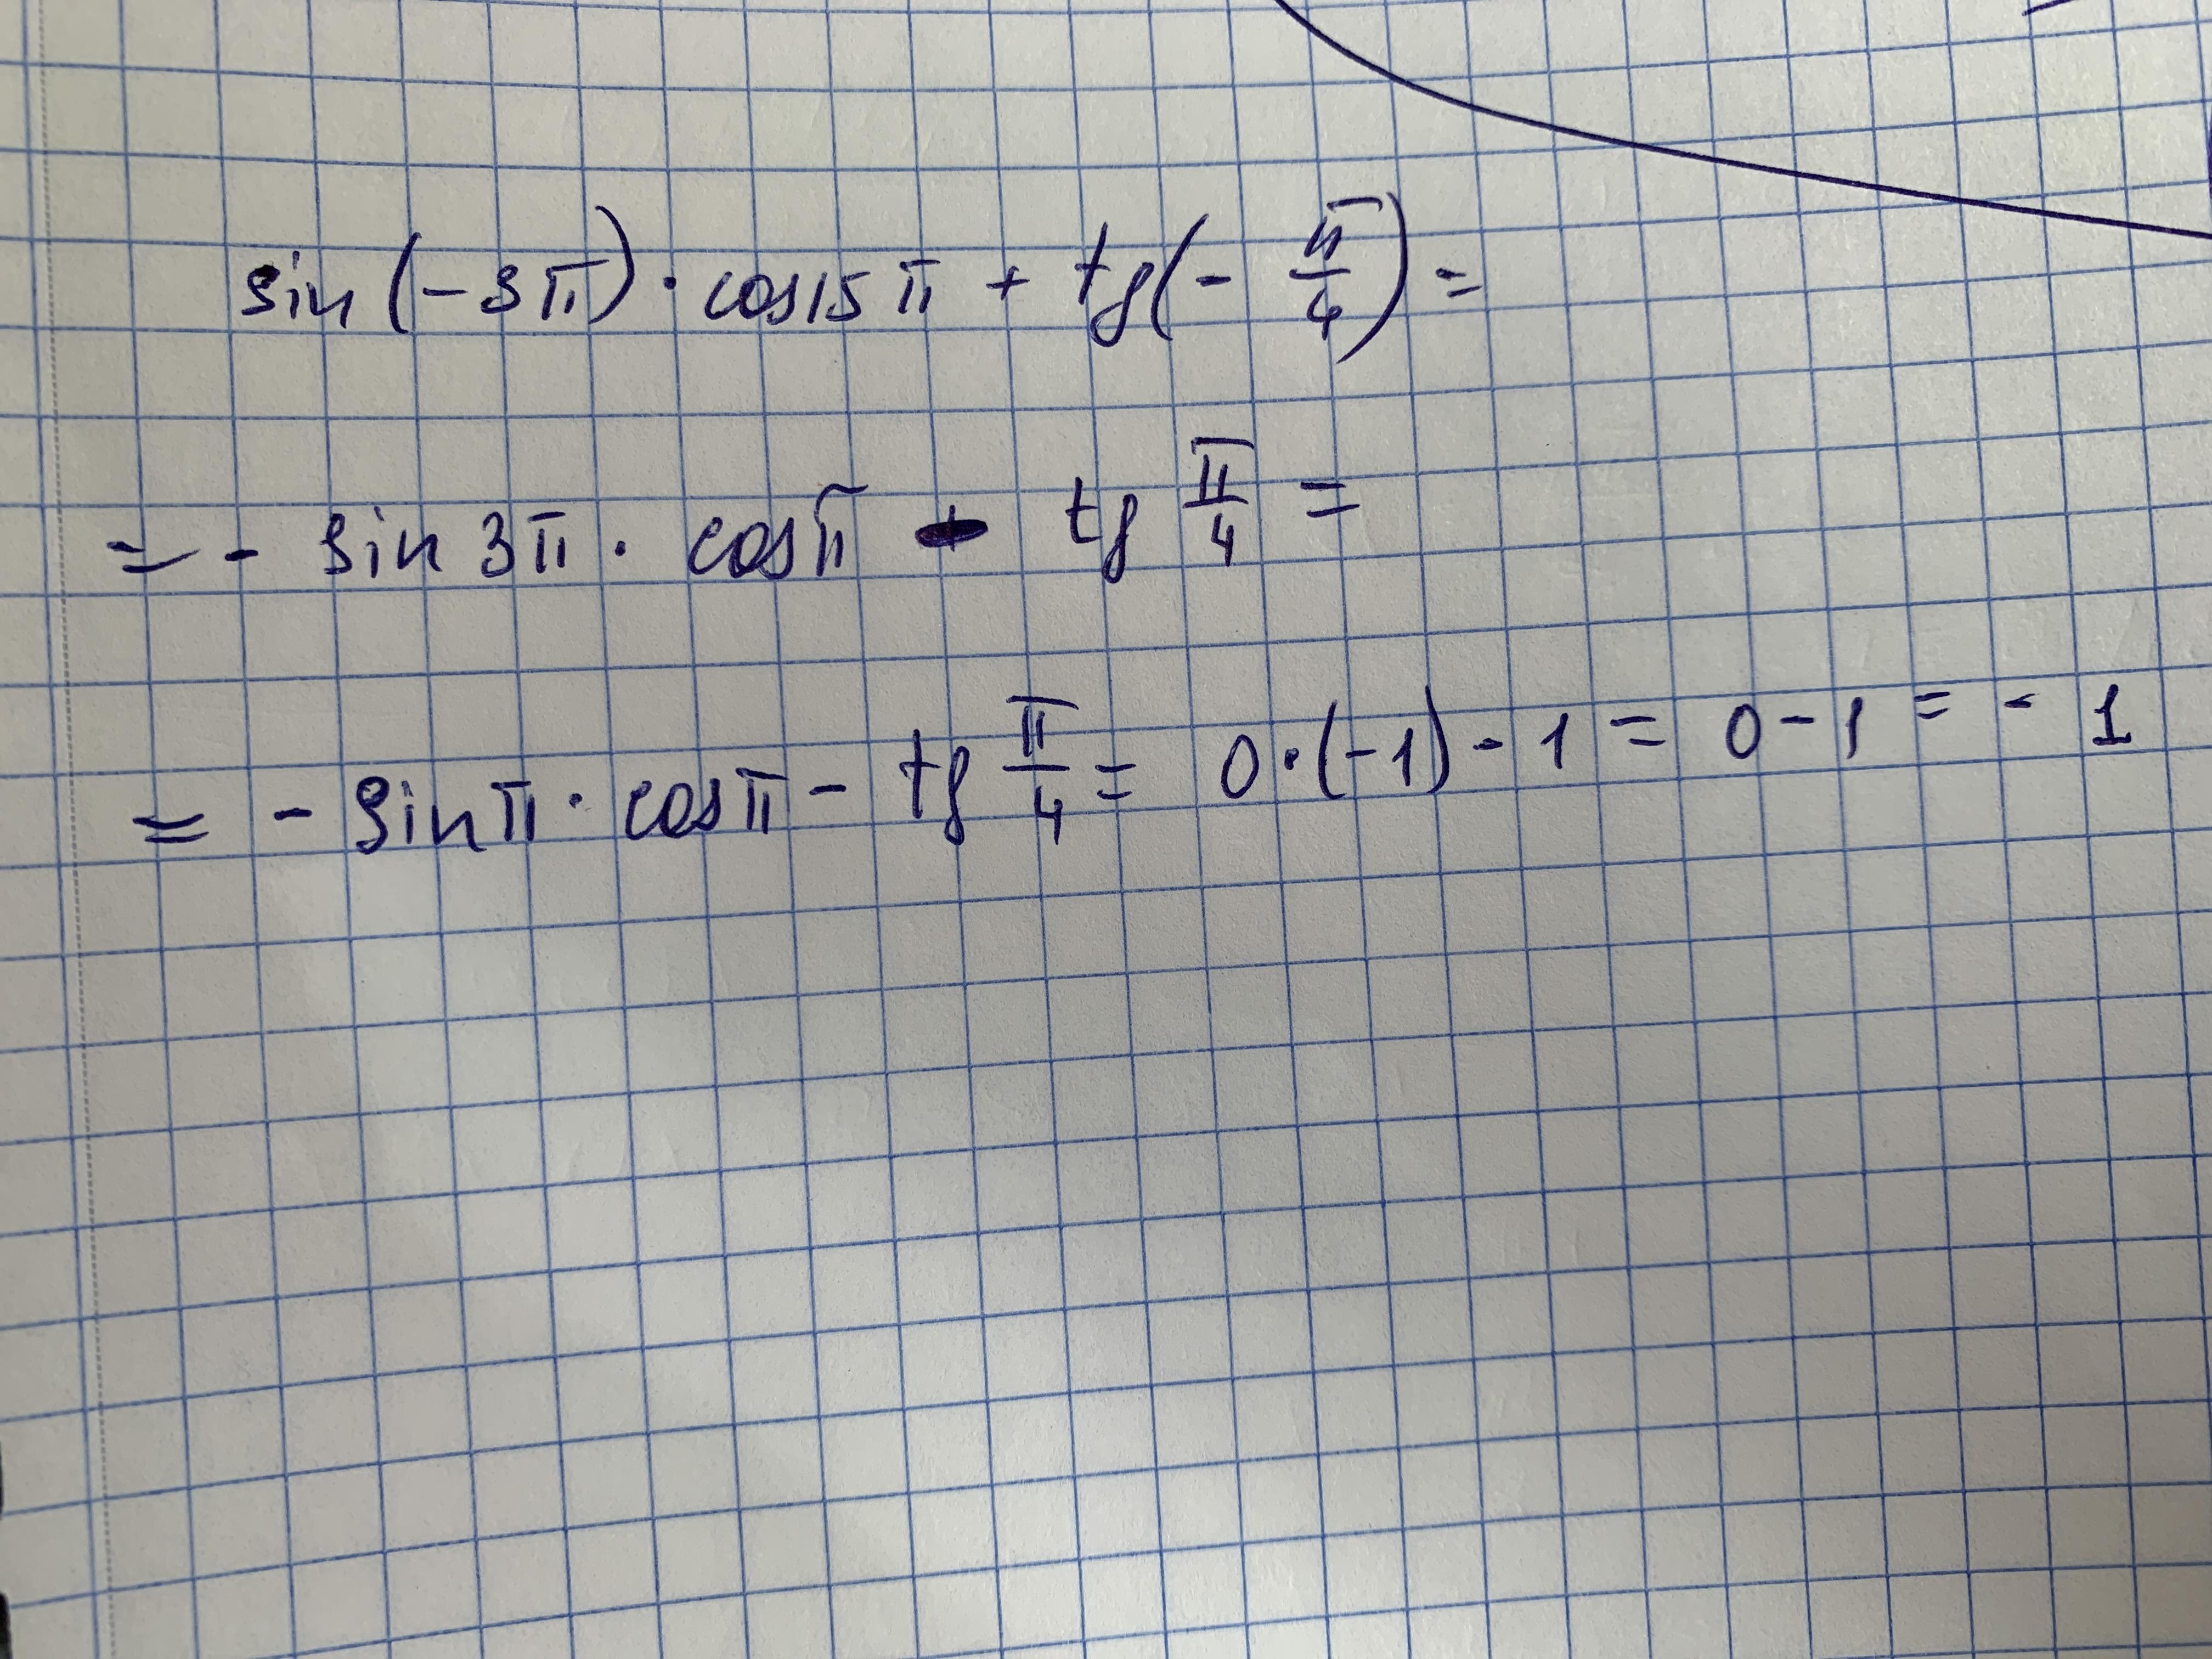 sin (-3π) · cos15π + tg(- π/4) =
= - sin 3π · cosπ - tg π/4 =
= - sinπ · cosπ - tg π/4 = 0·(-1) - 1 = 0 - 1 = - 1